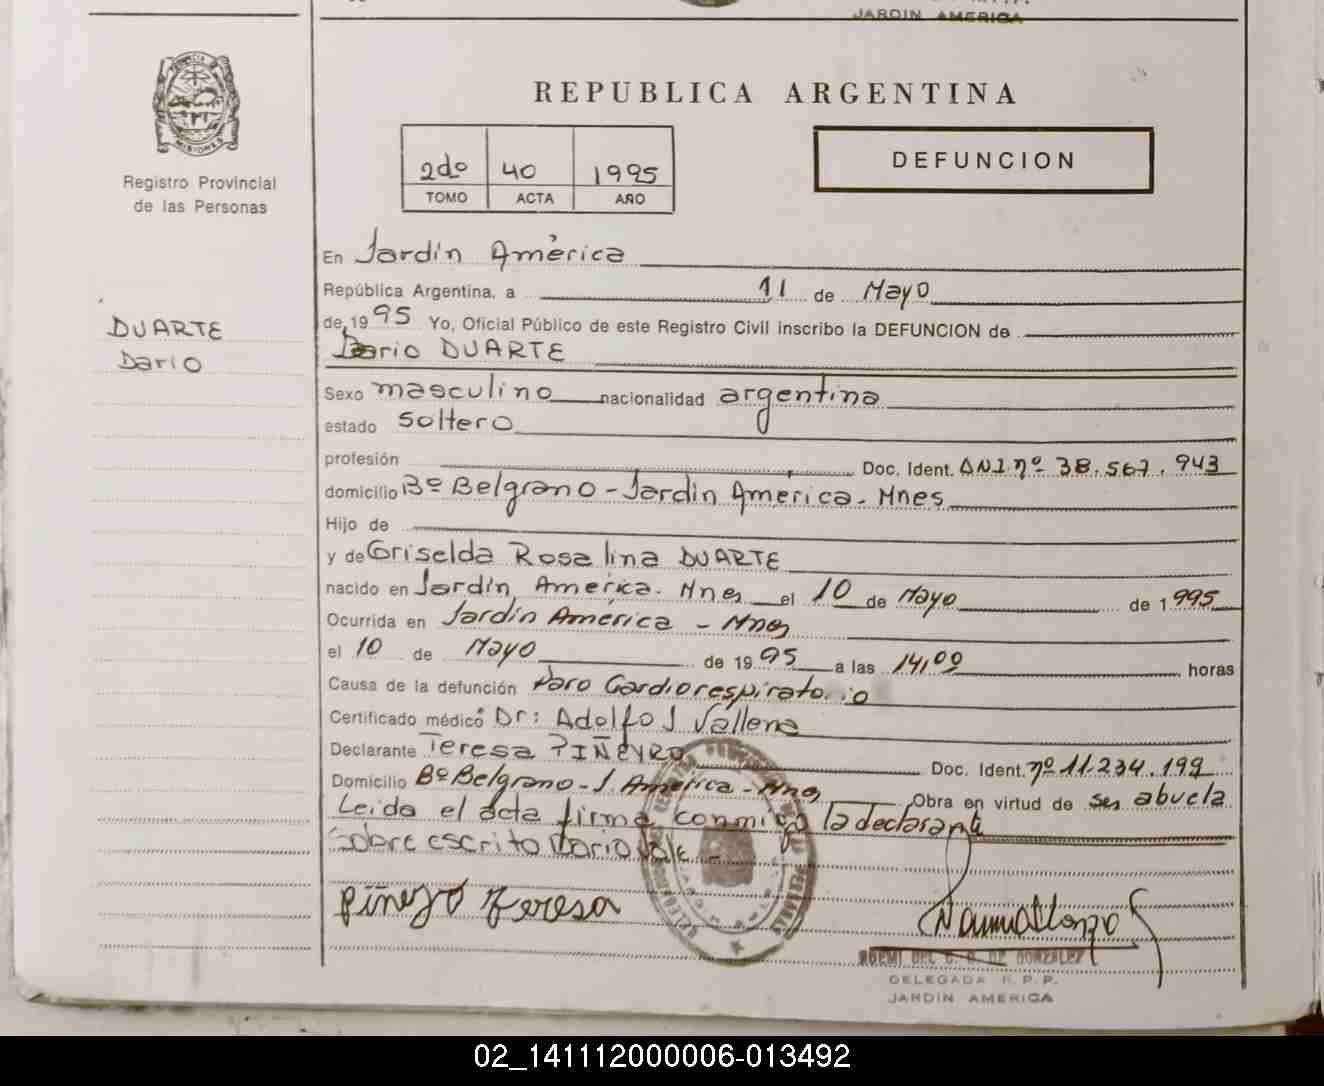 JARDIN AMERICA
MISIONES
Registro Provincial
de las Personas
DUARTE
Dario
REPUBLICA ARGENTINA
2do 40 1995
TOMO ACTA AÑO
DEFUNCION
En Jardín América
República Argentina, a 11 de Mayo
de 1995 Yo, Oficial Público de este Registro Civil inscribo la DEFUNCION de
Dario DUARTE
Sexo masculino nacionalidad argentina
estado soltero
profesión Doc. Ident. DNI nº 38.567.943
domicilio Bº Belgrano - Jardin America - Mnes
Hijo de
y de Griselda Rosalina DUARTE
nacido en Jardín América. Mnes el 10 de Mayo de 1995
Ocurrida en Jardín América - Mnes
el 10 de Mayo de 1995 a las 14,00 horas
Causa de la defunción Paro Cardiorespiratorio
Certificado médico Dr: Adolfo J Vallena
Declarante Teresa PIÑEYRO Doc. Ident. nº 11.234.199
Domicilio Bº Belgrano - J. América - Mnes Obra en virtud de ser abuela
Leida el acta firma conmigo la declarante
Sobre escrito Dario Vale -
Piñeyro Teresa
NOEMI DEL C. DE GONZALEZ
DELEGADA R.P.P.
JARDIN AMERICA
02_141112000006-013492